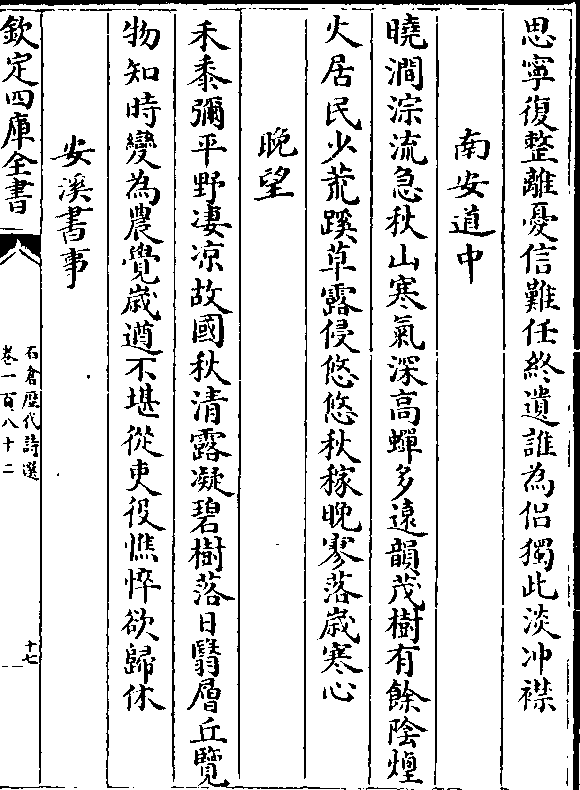 思寧復整離憂信難任終遺誰為侣獨此淡冲襟
南安道中
曉澗淙流急秋山寒氣深高蟬多遠韻茂樹有餘陰煌
火居民少荒蹊草露侵悠悠秋稼晚寥落歲寒心
晚望
禾黍彌平野凄凉故國秋清露凝碧樹落日翳層丘覽
物知時變為農覺歲遒不堪從吏役憔悴欲歸休
安溪書事
欽定四庫全書
石倉歷代詩選
卷一百八十二
十七